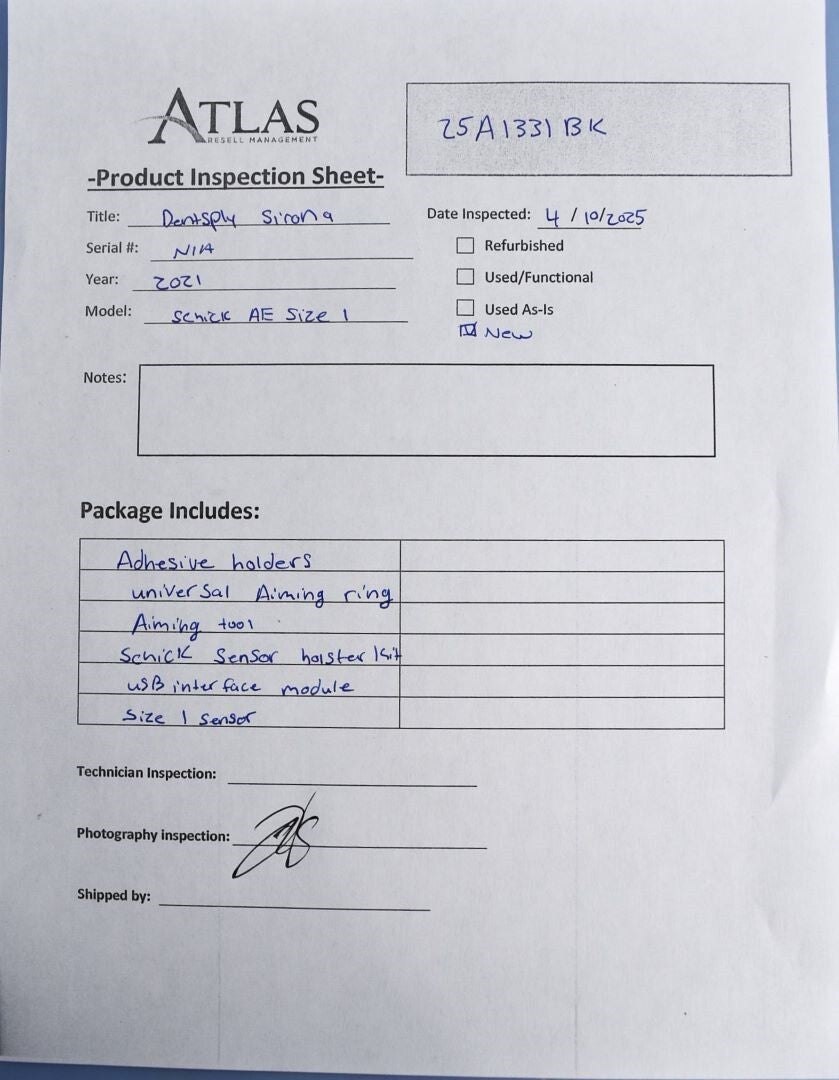 ATLAS
RESELL MANAGEMENT
25A1331BK
-Product Inspection Sheet-
Title: Dentsply Sirona
Date Inspected: 4/10/2025
Serial #: N/A
Refurbished
Year: 2021
Used/Functional
Model: Schick AE Size 1
Used As-Is
New
Notes:
Package Includes:
Adhesive holders
universal Aiming ring
Aiming tool
Schick Sensor holster kit
USB interface module
Size 1 Sensor
Technician Inspection:
Photography inspection:
Shipped by: